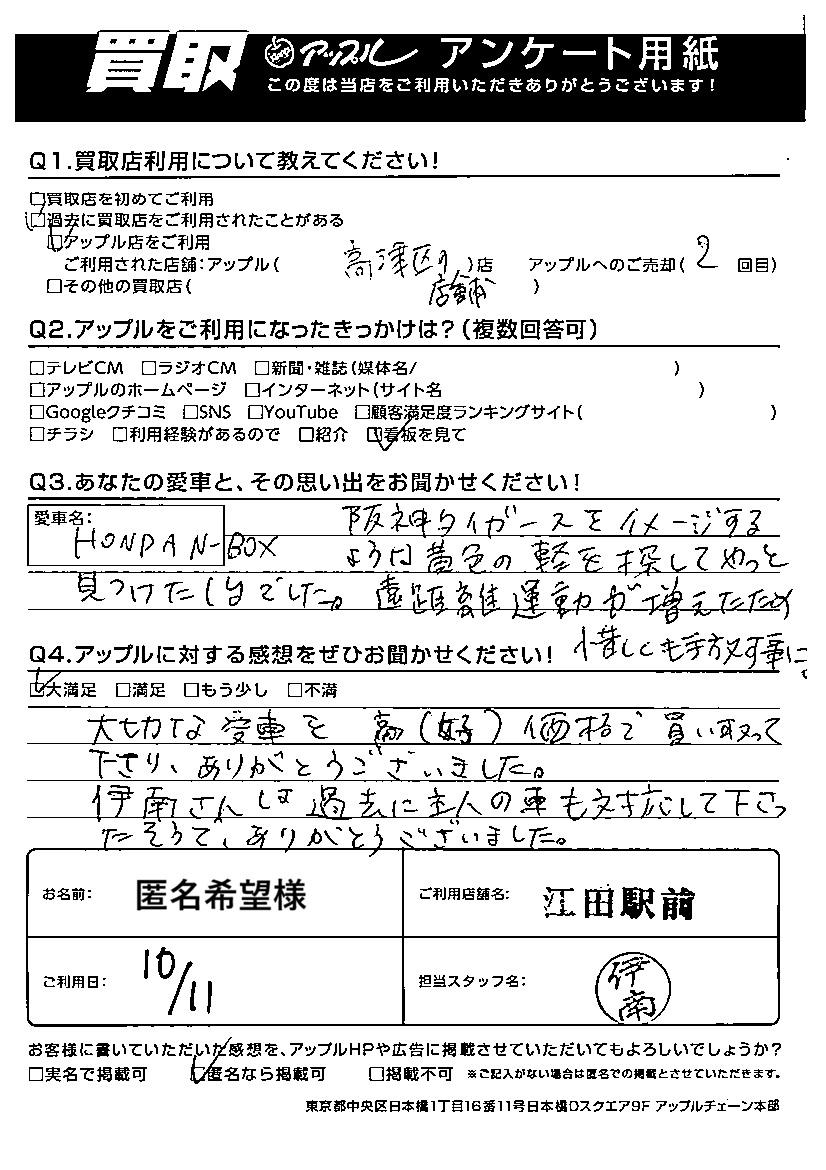 買取 アップル アンケート用紙
この度は当店をご利用いただきありがとうございます!
Q1.買取店利用について教えてください!
□買取店を初めてご利用
☑過去に買取店をご利用されたことがある
☑アップル店をご利用
ご利用された店舗:アップル( 高津区の店舗 )店 アップルへのご売却( 2 回目)
□その他の買取店( )
Q2.アップルをご利用になったきっかけは?(複数回答可)
□テレビCM □ラジオCM □新聞・雑誌(媒体名/ )
□アップルのホームページ □インターネット(サイト名 )
□Googleクチコミ □SNS □YouTube □顧客満足度ランキングサイト( )
□チラシ □利用経験があるので □紹介 ☑看板を見て
Q3.あなたの愛車と、その思い出をお聞かせください!
愛車名: HONDA N-BOX
阪神タイガースをイメージする
ような黄色の軽を探してやっと
見つけた1台でした。遠距離運動が増えたため
惜しくも手放す事に。
Q4.アップルに対する感想をぜひお聞かせください!
☑大満足 □満足 □もう少し □不満
大切な愛車を高(好)価格で買い取って
下さり、ありがとうございました。
伊南さんは過去に主人の車も対応して下さっ
たそうで、ありがとうございました。
お名前: 匿名希望様 ご利用店舗名: 江田駅前
ご利用日: 10/11 担当スタッフ名: 伊南
お客様に書いていただいた感想を、アップルHPや広告に掲載させていただいてもよろしいでしょうか?
□実名で掲載可 ☑匿名なら掲載可 □掲載不可 ※ご記入がない場合は匿名での掲載とさせていただきます。
東京都中央区日本橋1丁目16番11号日本橋Dスクエア9F アップルチェーン本部